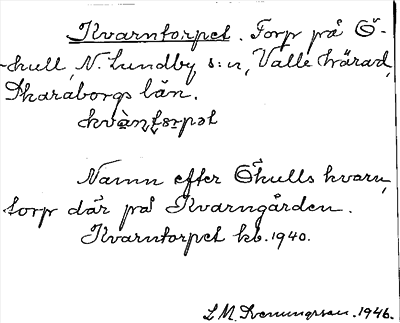 Kvarntorpet. Torp på Ö-
-hull, N. Lundby s:n, Valle härad,
Skaraborgs län.
kvà̀ɳʈɔrpət
Namn efter Öhulls kvarn,
torp där på Kvarngården.
Kvarntorpet kb. 1940.
L M. Svenungsson. 1946.